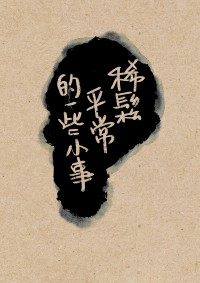 稀鬆
平常
的一些小事